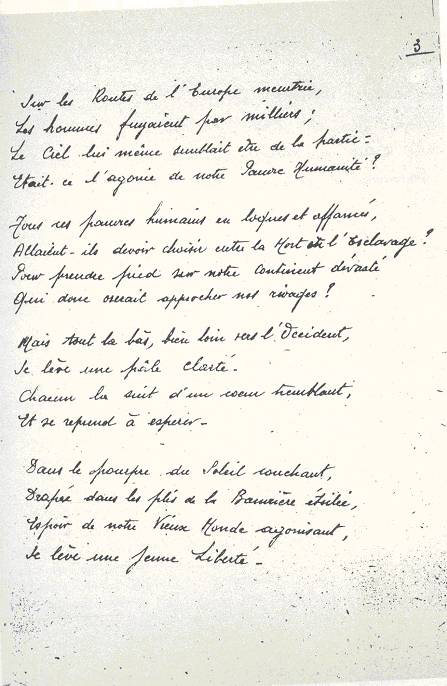 3
Sur les Routes de l'Europe meurtrie,
Les hommes fuyaient par milliers ;
Le Ciel lui même semblait être de la partie -
Etait-ce l'agonie de notre Pauvre Humanité ?
Tous ces pauvres humains en loques et affamés,
Allaient-ils devoir choisir entre la Mort et l'Esclavage ?
Pour prendre pied sur notre continent dévasté
Qui donc oserait approcher nos rivages ?
Mais tout là bàs, bien loin vers l'Occident,
Se lève une pâle clarté -
Chacun la suit d'un coeur tremblant,
Et se reprend à espérer -
Dans le pourpre du Soleil couchant,
Drapée dans les plis de la Bannière étoilée,
Espoir de notre Vieux Monde agonisant,
Se lève une Jeune Liberté -